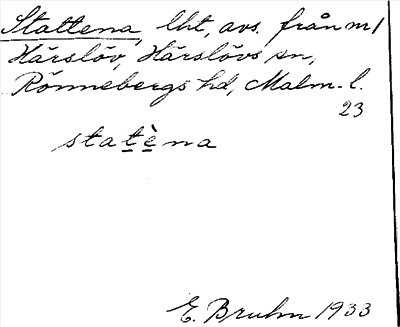 Stattena, lht, avs. från m/
Härslöv, Härslövs sn,
Rönnebergs hd, Malm. l.
23
statèna
E. Bruhn 1933